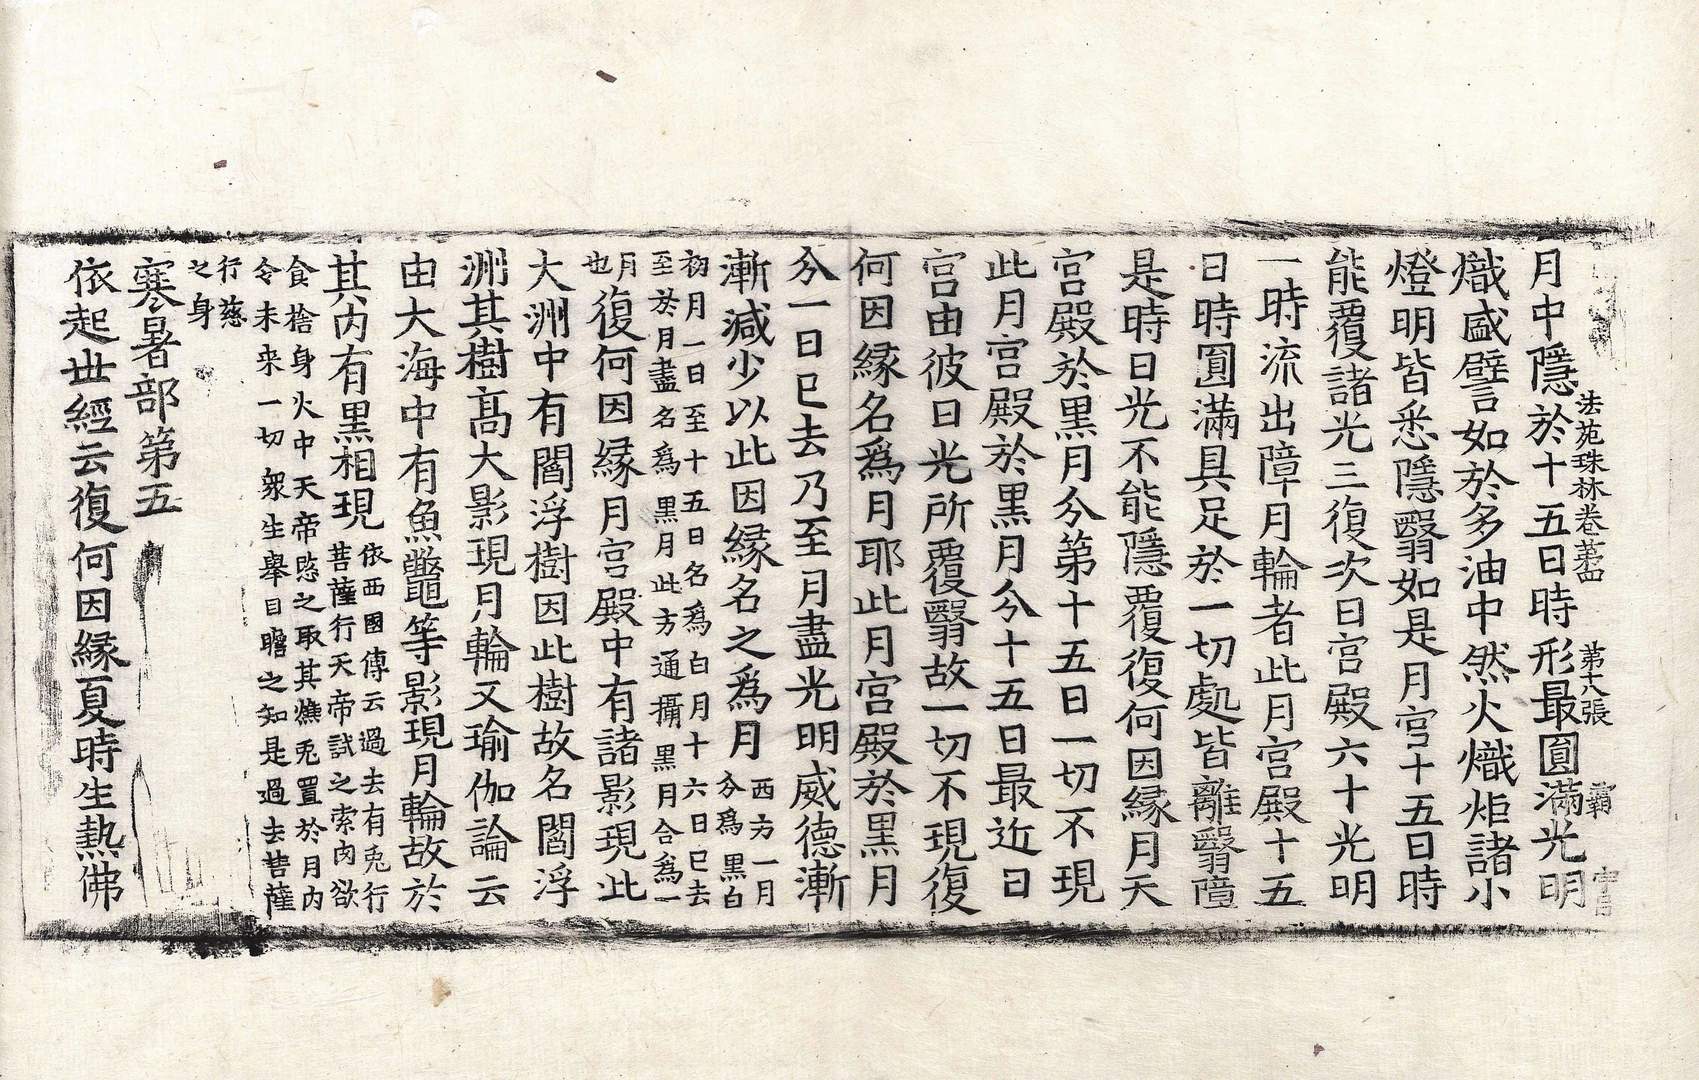 法苑珠林卷苐四 第十八張 霸
月中隱於十五日時形最圓滿光明
熾盛譬如於多油中然火熾炬諸小
燈明皆悉隱翳如是月宮十五日時
能覆諸光三復次日宮殿六十光明
一時流出障月輪者此月宮殿十五
日時圓滿具足於一切處皆離翳障
是時日光不能隱覆復何因緣月天
宮殿於黑月分第十五日一切不現
此月宮殿於黑月分十五日最近日
宮由彼日光所覆翳故一切不現復
何因緣名爲月耶此月宮殿於黑月
分一日已去乃至月盡光明威德漸
漸減少以此因緣名之爲月
西方一月
分爲黑白
初月一日至十五日名爲白月十六日已去
至於月盡名爲黑月此方通攝黑月合爲一
月
也
復何因緣月宮殿中有諸影現此
大洲中有閻浮樹因此樹故名閻浮
洲其樹髙大影現月輪又瑜伽論云
由大海中有魚鼈等影現月輪故於
其內有黑相現
依西國傳云過去有兎行
菩薩行天帝試之索肉欲
食捨身火中天帝愍之取其燋兎置於月內
令未来一切衆生舉目瞻之知是過去菩薩
行慈
之身
寒暑部第五
依起丗經云復何因緣夏時生熱佛